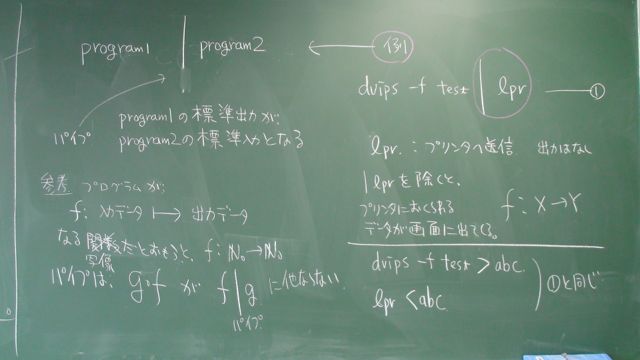 program1 | program2 ← 例1
パイプ
program1の標準出力が
program2の標準入力となる
参考 プログラムが
f: 入力データ ↦ 出力データ
なる関数だとおもうと、 f: ℕ₀→ℕ₀
写像
パイプは、 g∘f が f|g に他ならない
パイプ
dvips -f test | lpr ——①
lpr : プリンタへ送信 出力はなし
| lprを除くと、
プリンタにおくられる
データが画面に出てくる。
f: X→Y
dvips -f test > abc
lpr < abc
①と同じ